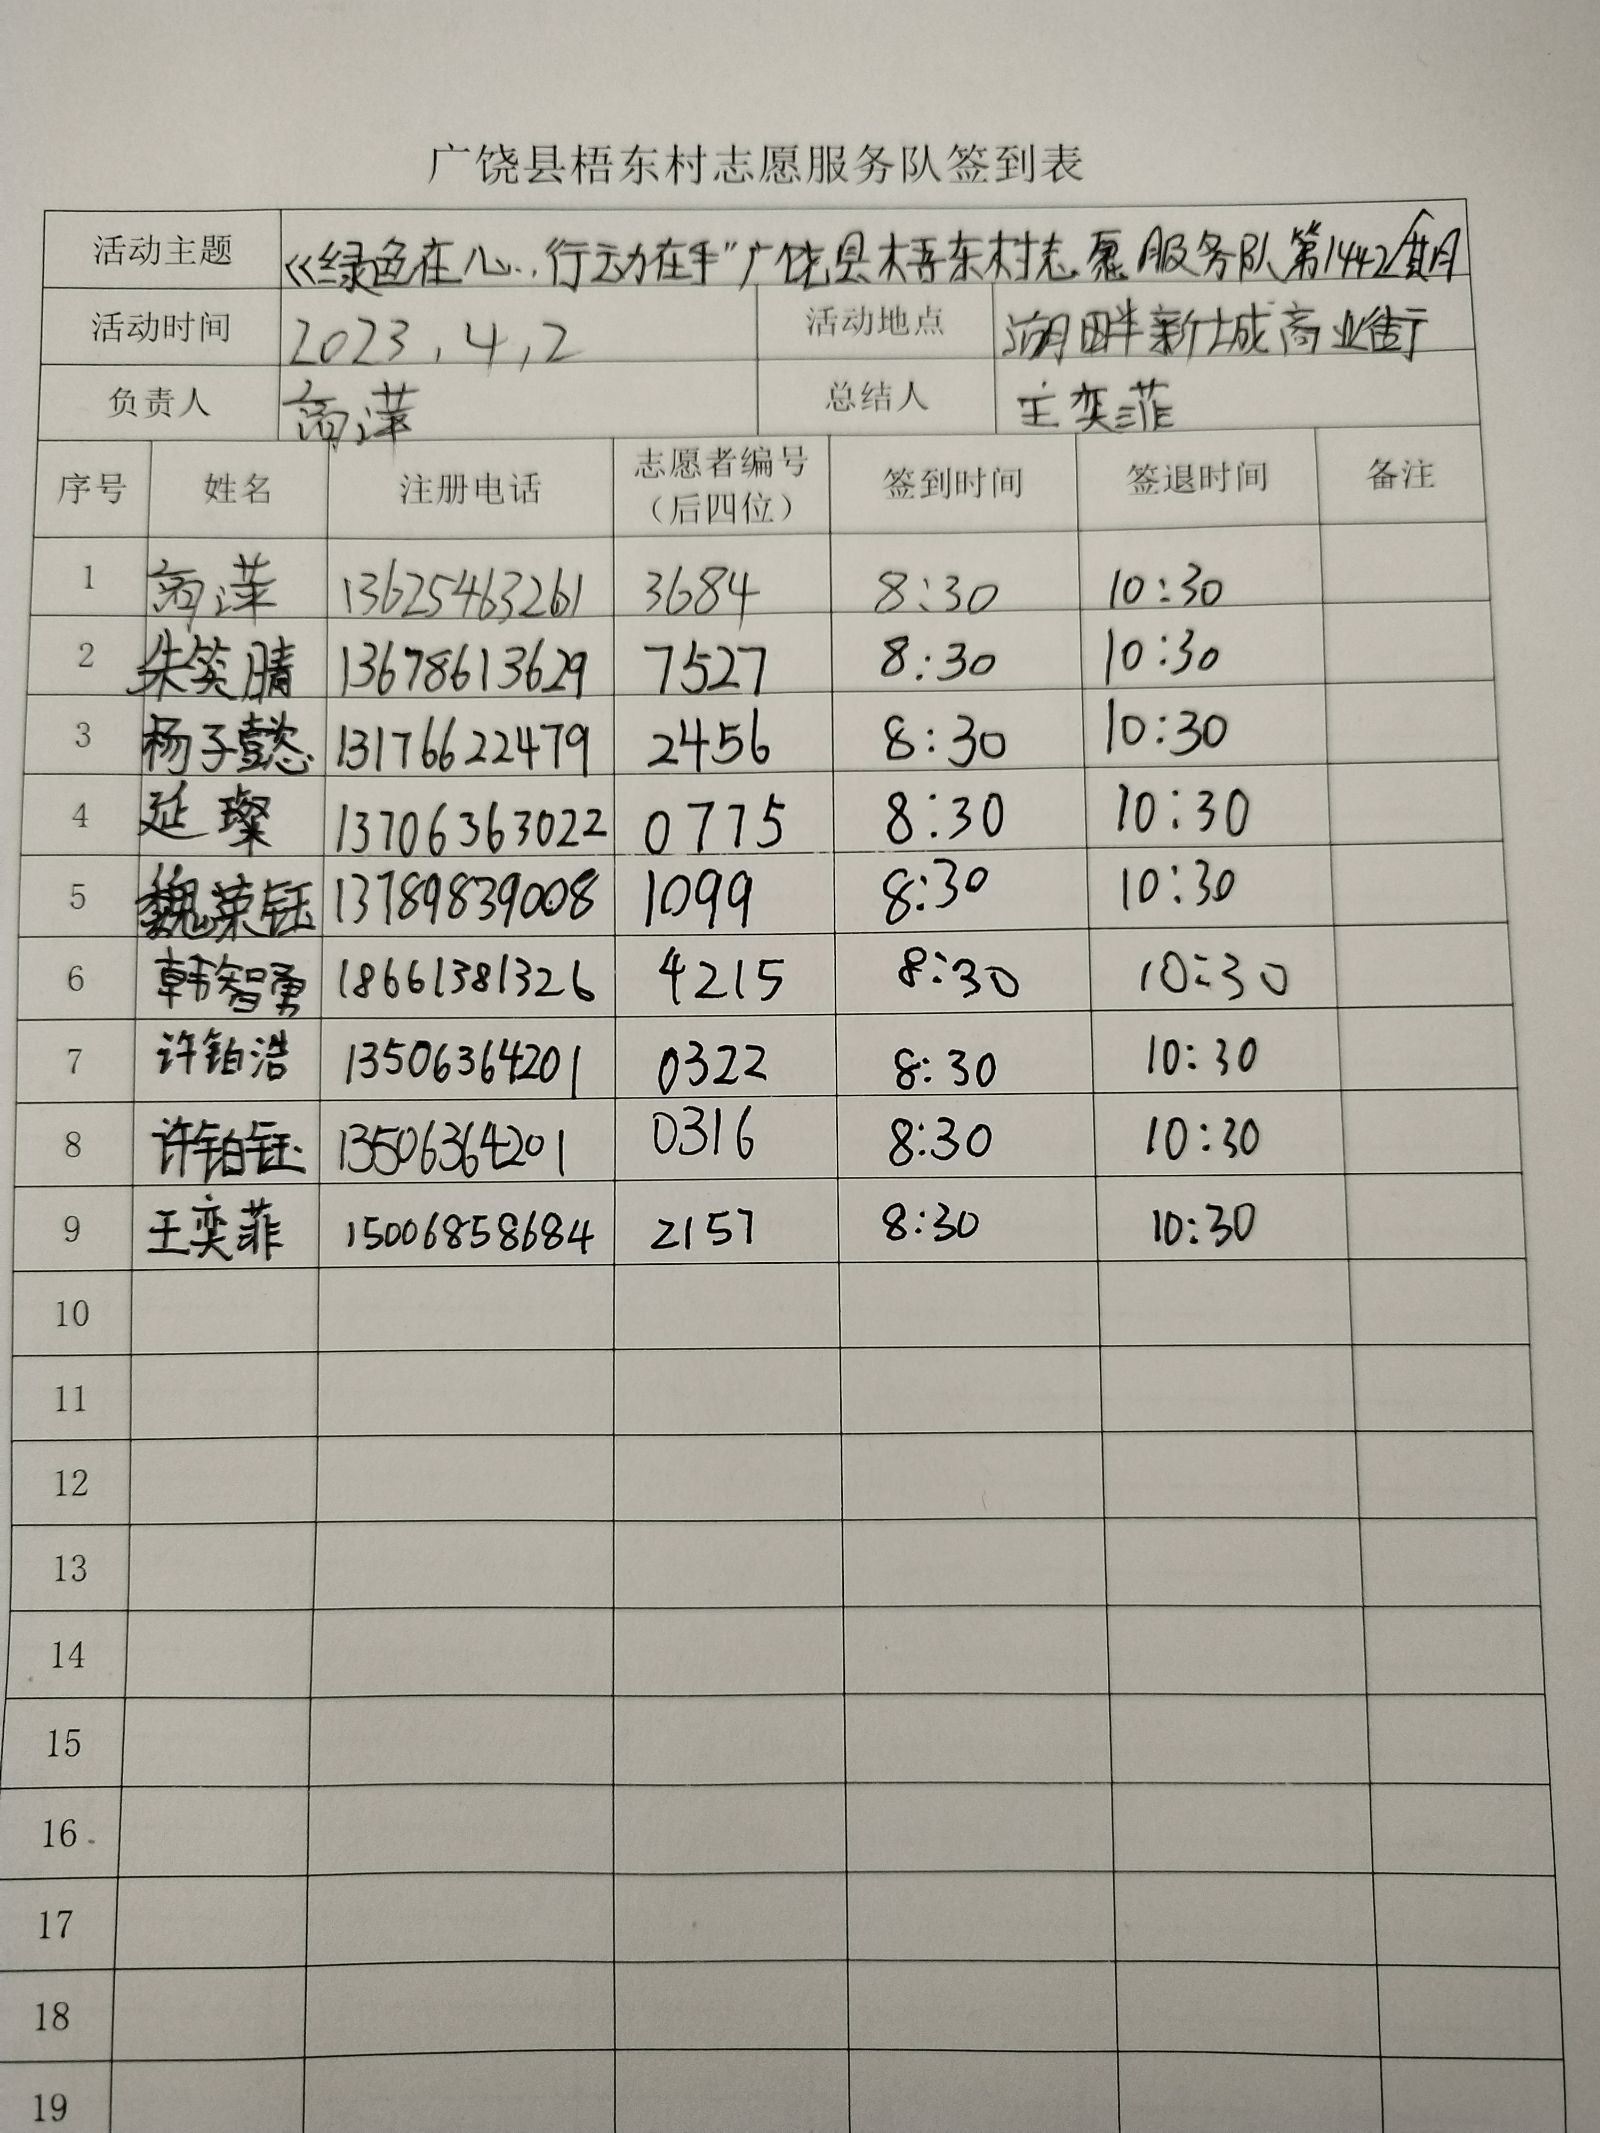 广饶县梧东村志愿服务队签到表
活动主题 《绿色在心,行动在手"广饶县梧东村志愿服务队第1442期
活动时间 2023,4,2 活动地点 湖畔新城商业街
负责人 总结人 王奕菲
序号 姓名 注册电话 志愿者编号（后四位） 签到时间 签退时间 备注
1 13625463261 3684 8:30 10:30
2 朱笑晴 13678613629 7527 8:30 10:30
3 杨子懿 13176622479 2456 8:30 10:30
4 延璨 13706363022 0775 8:30 10:30
5 魏荣钰 13789839008 1099 8:30 10:30
6 韩智勇 18661381326 4215 8:30 10:30
7 许铂浩 13506364201 0322 8:30 10:30
8 许铂钰 13506364201 0316 8:30 10:30
9 王奕菲 15006858684 2157 8:30 10:30
10
11
12
13
14
15
16
17
18
19